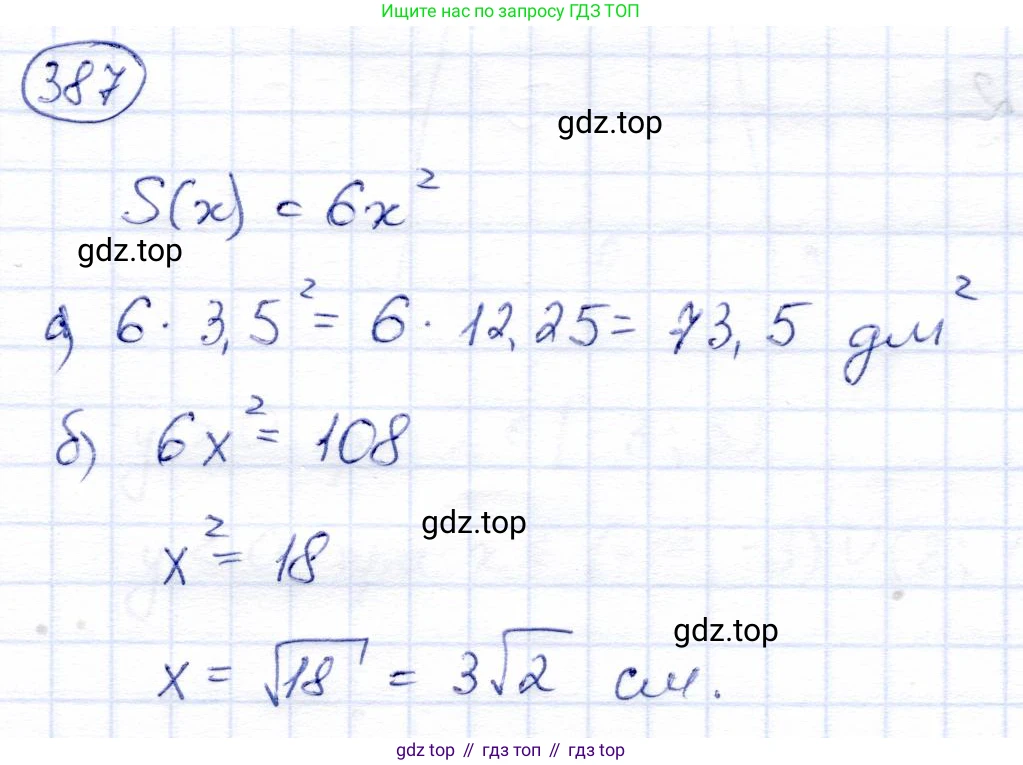 Ищите нас по запросу ГДЗ ТОП
387
gdz.top
S(x) = 6x²
gdz.top
а) 6 · 3,5² = 6 · 12,25 = 73,5 дм²
б) 6x² = 108
gdz.top
x² = 18
gdz.top
x = √18 = 3√2 см.
gdz top // гдз топ // gdz top